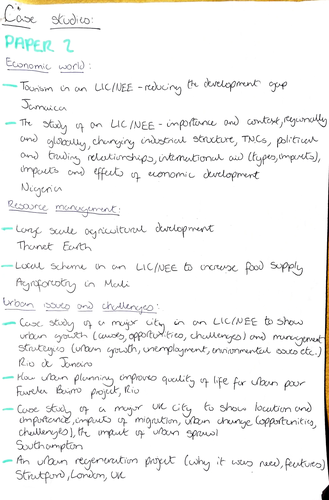 Case studies:
PAPER 2
Economic world:
- Tourism in an LIC/NEE - reducing the development gap
Jamaica
- The study of an LIC/NEE - importance and context, regionally
and globally, changing industrial structure, TNCs, political
and trading relationships, international aid (types, impacts),
impacts and effects of economic development
Nigeria
Resource management:
- Large scale agricultural development
Thanet Earth
- Local scheme in an LIC/NEE to increase food supply
Agroforestry in Mali
Urban issues and challenges:
- Case study of a major city in an LIC/NEE to show
urban growth (causes, opportunities, challenges) and management
strategies (urban growth, unemployment, environmental issues etc..)
Rio de Janeiro
- How urban planning improves quality of life for urban poor
Favela Bairro project, Rio
- Case study of a major UK city to show location and
importance, impacts of migration, urban change (opportunities,
challenges), the impact of urban sprawl
Southampton
- An urban regeneration project (why it was need, features)
Stratford, London, UK